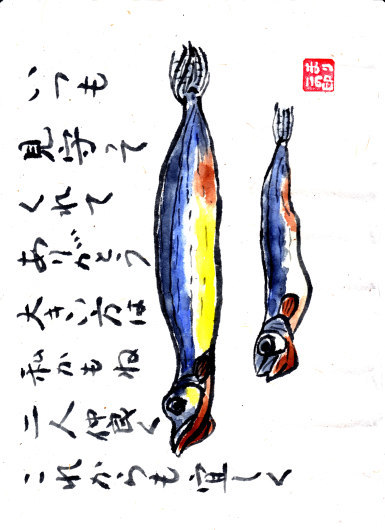 いつも
見守って
くれて
ありがとう
大きい方は
私かもね
二人仲良く
これからも宜しく